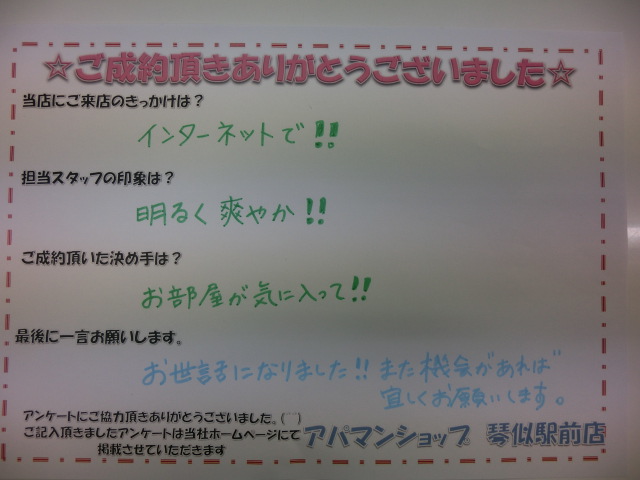 ☆ご成約頂きありがとうございました☆
当店にご来店のきっかけは？
インターネットで!!
担当スタッフの印象は？
明るく爽やか!!
ご成約頂いた決め手は？
お部屋が気に入って!!
最後に一言お願いします。
お世話になりました!! また機会があれば
宜しくお願いします。
アンケートにご協力頂きありがとうございました。(⌒⌒)
ご記入頂きましたアンケートは当社ホームページにて
掲載させていただきます
アパマンショップ 琴似駅前店